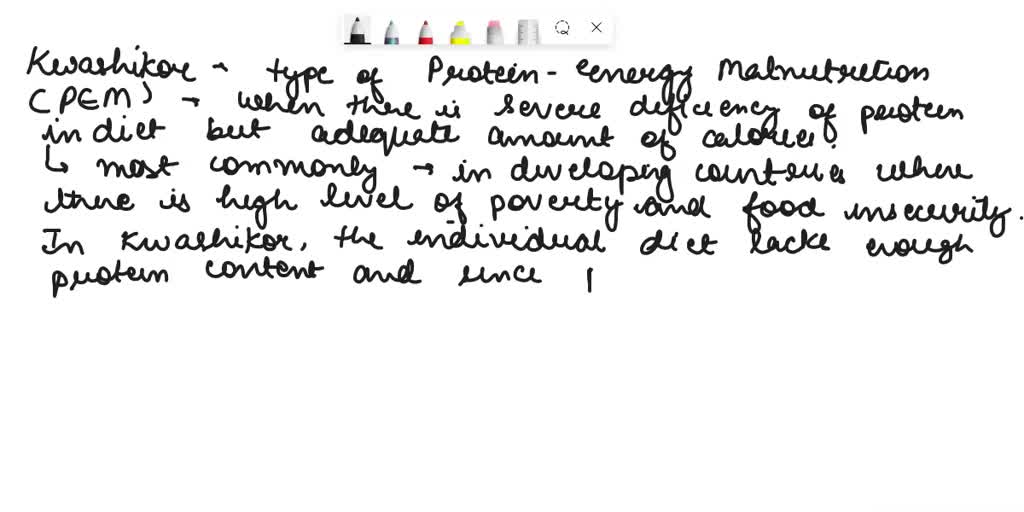 Kwashikor → type of Protein-energy Malnutrition
(PEM) → when there is severe deficiency of protein
in diet but adequate amount of calories.
↳ most commonly → in developing countries where
there is high level of poverty and food insecurity.
In Kwashikor, the individual diet lacks enough
protein content and since